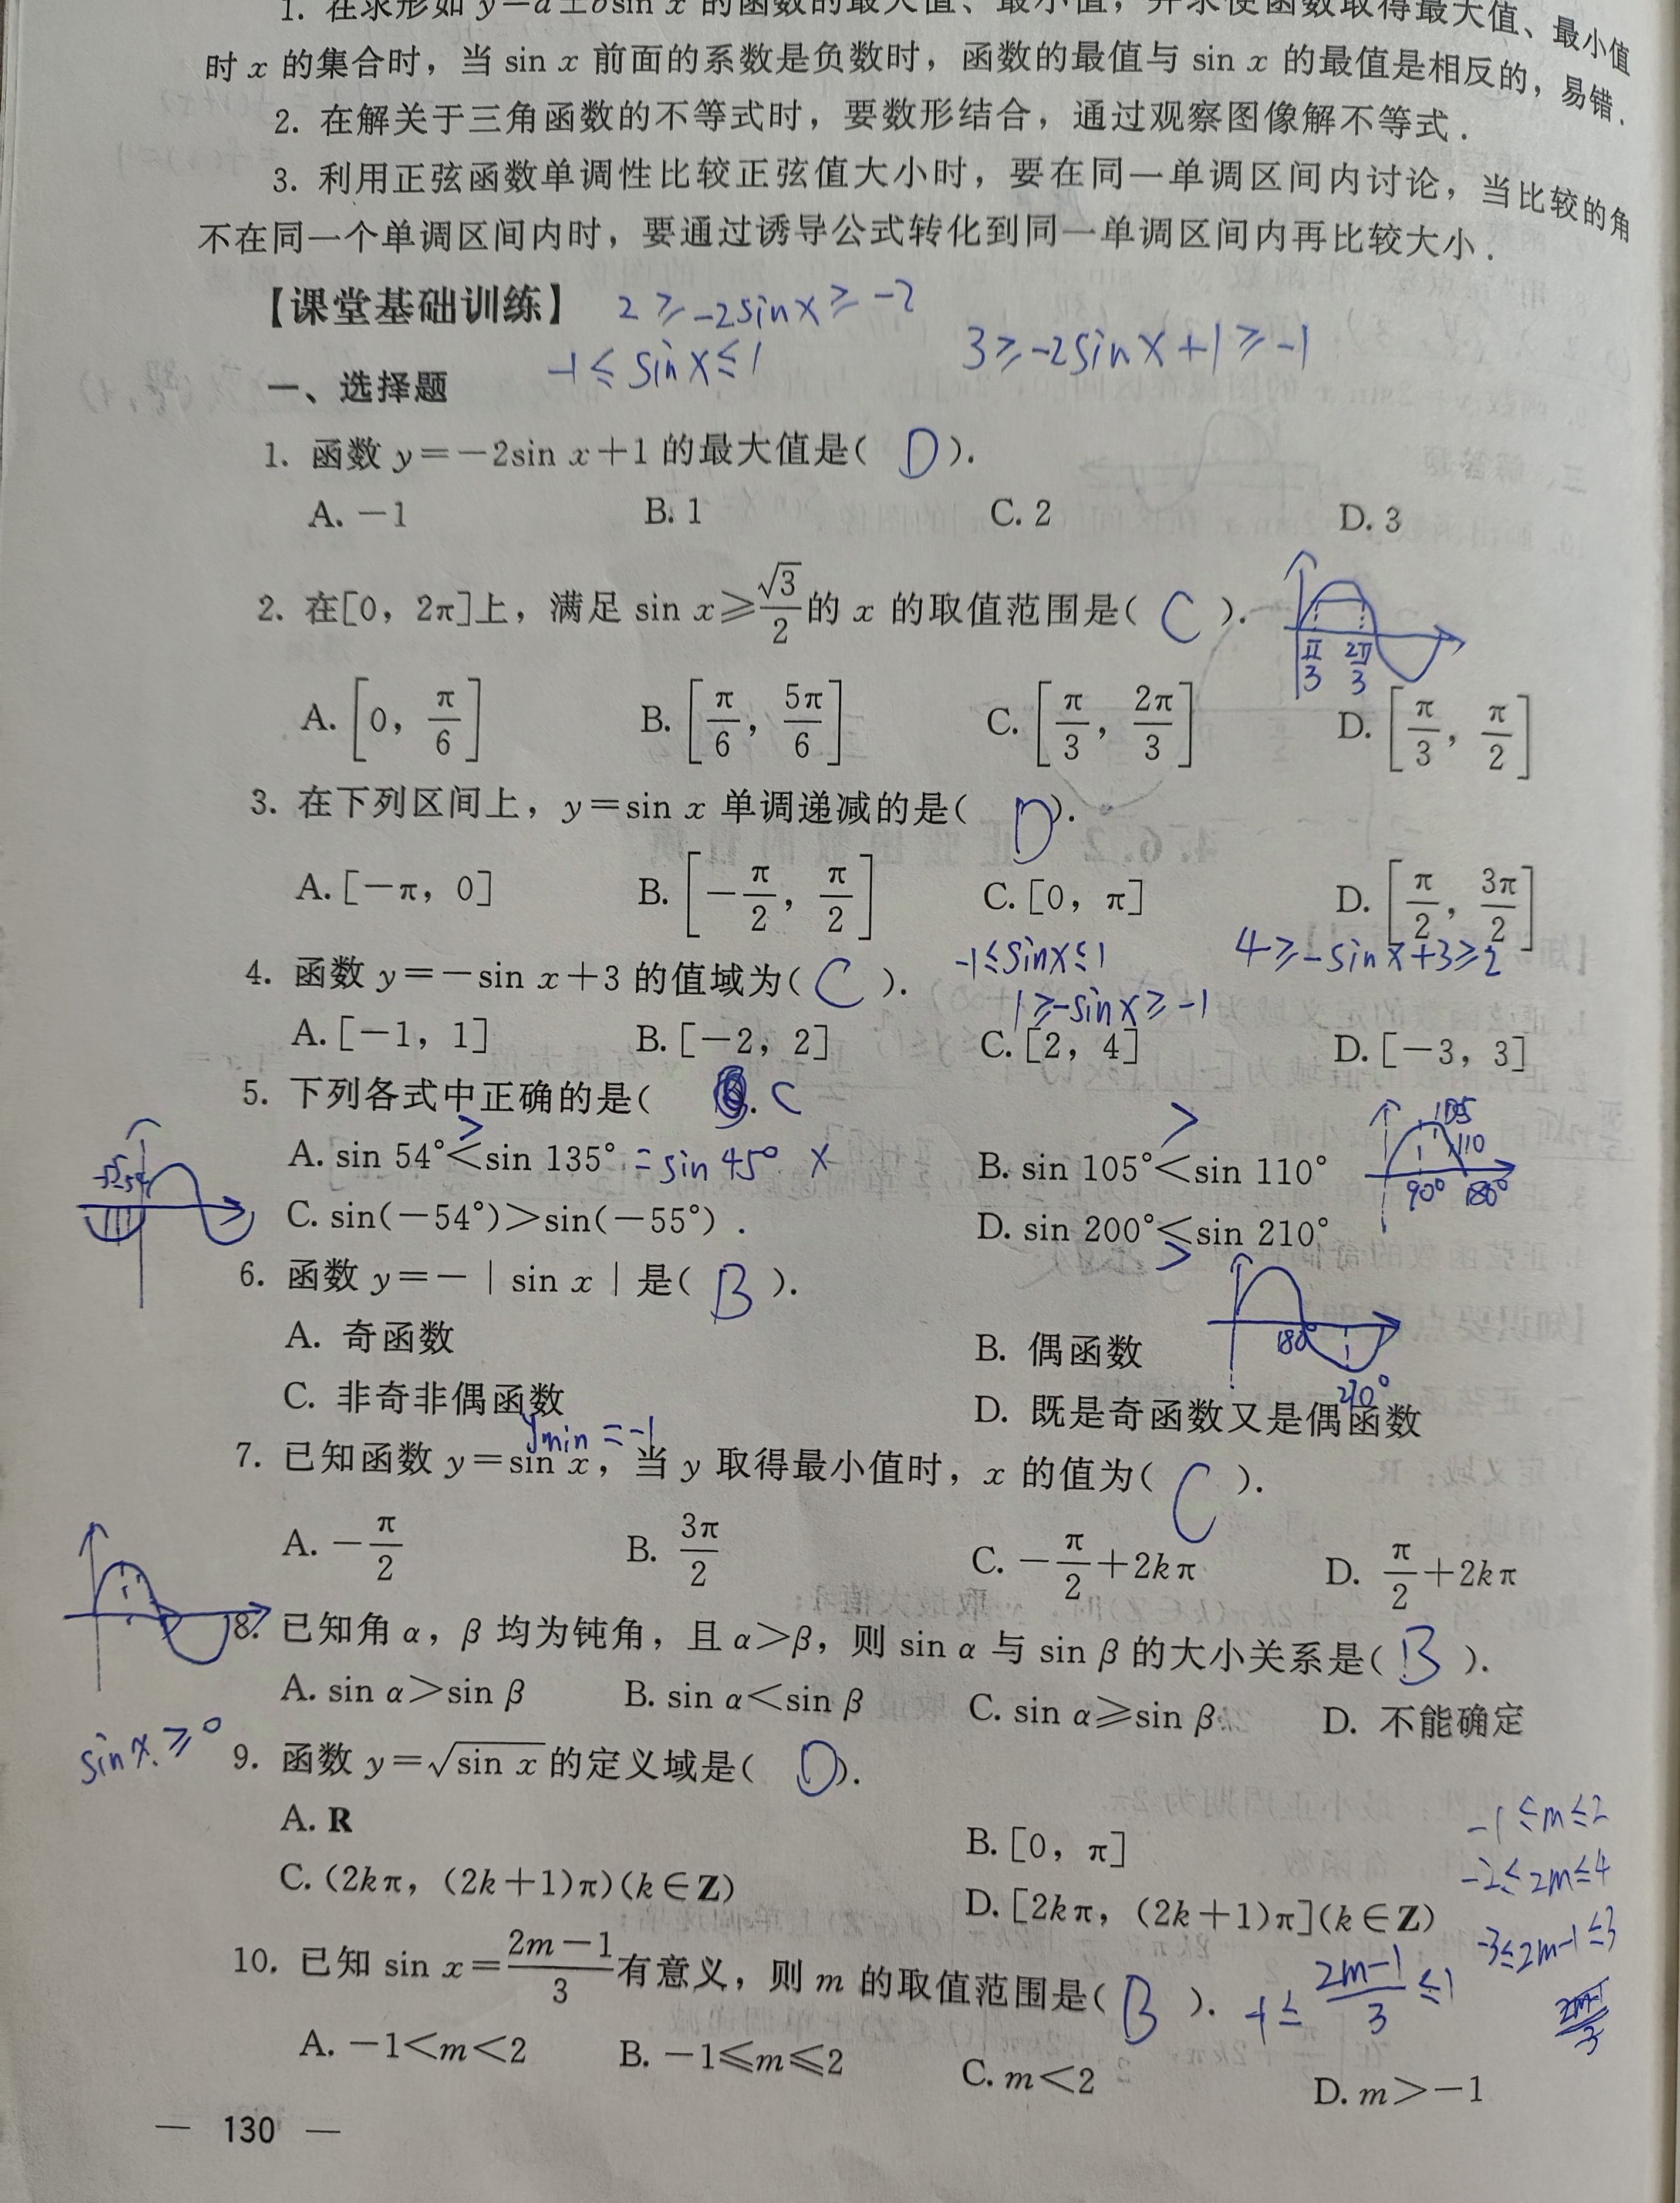 1. 在求形如 y=a±bsin x 的函数的最大值、最小值，并求使函数取得最大值、最小值
时 x 的集合时，当 sin x 前面的系数是负数时，函数的最值与 sin x 的最值是相反的，易错.
2. 在解关于三角函数的不等式时，要数形结合，通过观察图像解不等式.
3. 利用正弦函数单调性比较正弦值大小时，要在同一单调区间内讨论，当比较的角
不在同一个单调区间内时，要通过诱导公式转化到同一单调区间内再比较大小.
【课堂基础训练】 2≥-2sinx≥-2
-1≤sinx≤1 3≥-2sinx+1≥-1
一、选择题
1. 函数 y=-2sin x+1 的最大值是( D ).
A. -1 B. 1 C. 2 D. 3
2. 在[0, 2π]上，满足 sin x≥√3/2 的 x 的取值范围是( C ).
π/3 2π/3
A. [0, π/6] B. [π/6, 5π/6] C. [π/3, 2π/3] D. [π/3, π/2]
3. 在下列区间上，y=sin x 单调递减的是( D ).
A. [-π, 0] B. [-π/2, π/2] C. [0, π] D. [π/2, 3π/2]
-1≤sinx≤1 4≥-sinx+3≥2
4. 函数 y=-sin x+3 的值域为( C ).
1≥-sinx≥-1
A. [-1, 1] B. [-2, 2] C. [2, 4] D. [-3, 3]
5. 下列各式中正确的是( C
> >
A. sin 54°<sin 135° =sin 45° × B. sin 105°<sin 110°
105 110 90° 180°
C. sin(-54°)>sin(-55°). D. sin 200°<sin 210°
>
6. 函数 y=-|sin x|是( B ).
A. 奇函数 B. 偶函数
180° 270°
C. 非奇非偶函数 D. 既是奇函数又是偶函数
ymin=-1
7. 已知函数 y=sin x，当 y 取得最小值时，x 的值为( C ).
A. -π/2 B. 3π/2 C. -π/2+2kπ D. π/2+2kπ
8. 已知角 α，β 均为钝角，且 α>β，则 sin α 与 sin β 的大小关系是( B ).
A. sin α>sin β B. sin α<sin β C. sin α≥sin β D. 不能确定
sinx≥0
9. 函数 y=√sin x 的定义域是( D ).
A. R B. [0, π]
C. (2kπ, (2k+1)π)(k∈Z) D. [2kπ, (2k+1)π](k∈Z)
-1≤m≤2
-2≤2m≤4
-3≤2m-1≤3
10. 已知 sin x=(2m-1)/3 有意义，则 m 的取值范围是( B ). -1≤(2m-1)/3≤1
A. -1<m<2 B. -1≤m≤2 C. m<2 D. m>-1
— 130 —